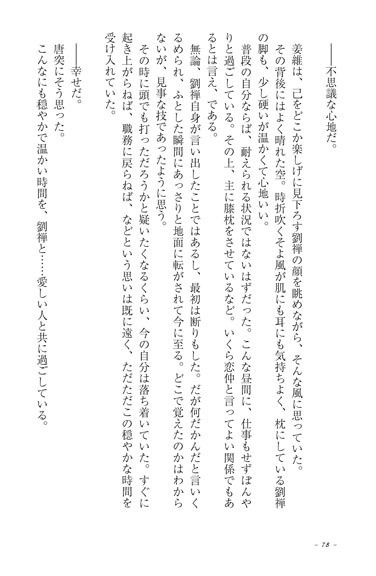 ――不思議な心地だ。
姜維は、己をどこか楽しげに見下ろす劉禅の顔を眺めながら、そんな風に思っていた。
その背後にはよく晴れた空。時折吹くそよ風が肌にも耳にも気持ちよく、枕にしている劉禅
の脚も、少し硬いが温かくて心地いい。
普段の自分ならば、耐えられる状況ではないはずだった。こんな昼間に、仕事もせずぼんや
りと過ごしている。その上、主に膝枕をさせているなど。いくら恋仲と言ってよい関係でもあ
るとは言え、である。
無論、劉禅自身が言い出したことではあるし、最初は断りもした。だが何だかんだと言いく
るめられ、ふとした瞬間にあっさりと地面に転がされて今に至る。どこで覚えたのかはわから
ないが、見事な技であったように思う。
その時に頭でも打っただろうかと疑いたくなるくらい、今の自分は落ち着いていた。すぐに
起き上がらねば、職務に戻らねば、などという思いは既に遠く、ただただこの穏やかな時間を
受け入れていた。
――幸せだ。
唐突にそう思った。
こんなにも穏やかで温かい時間を、劉禅と……愛しい人と共に過ごしている。
- 78 -